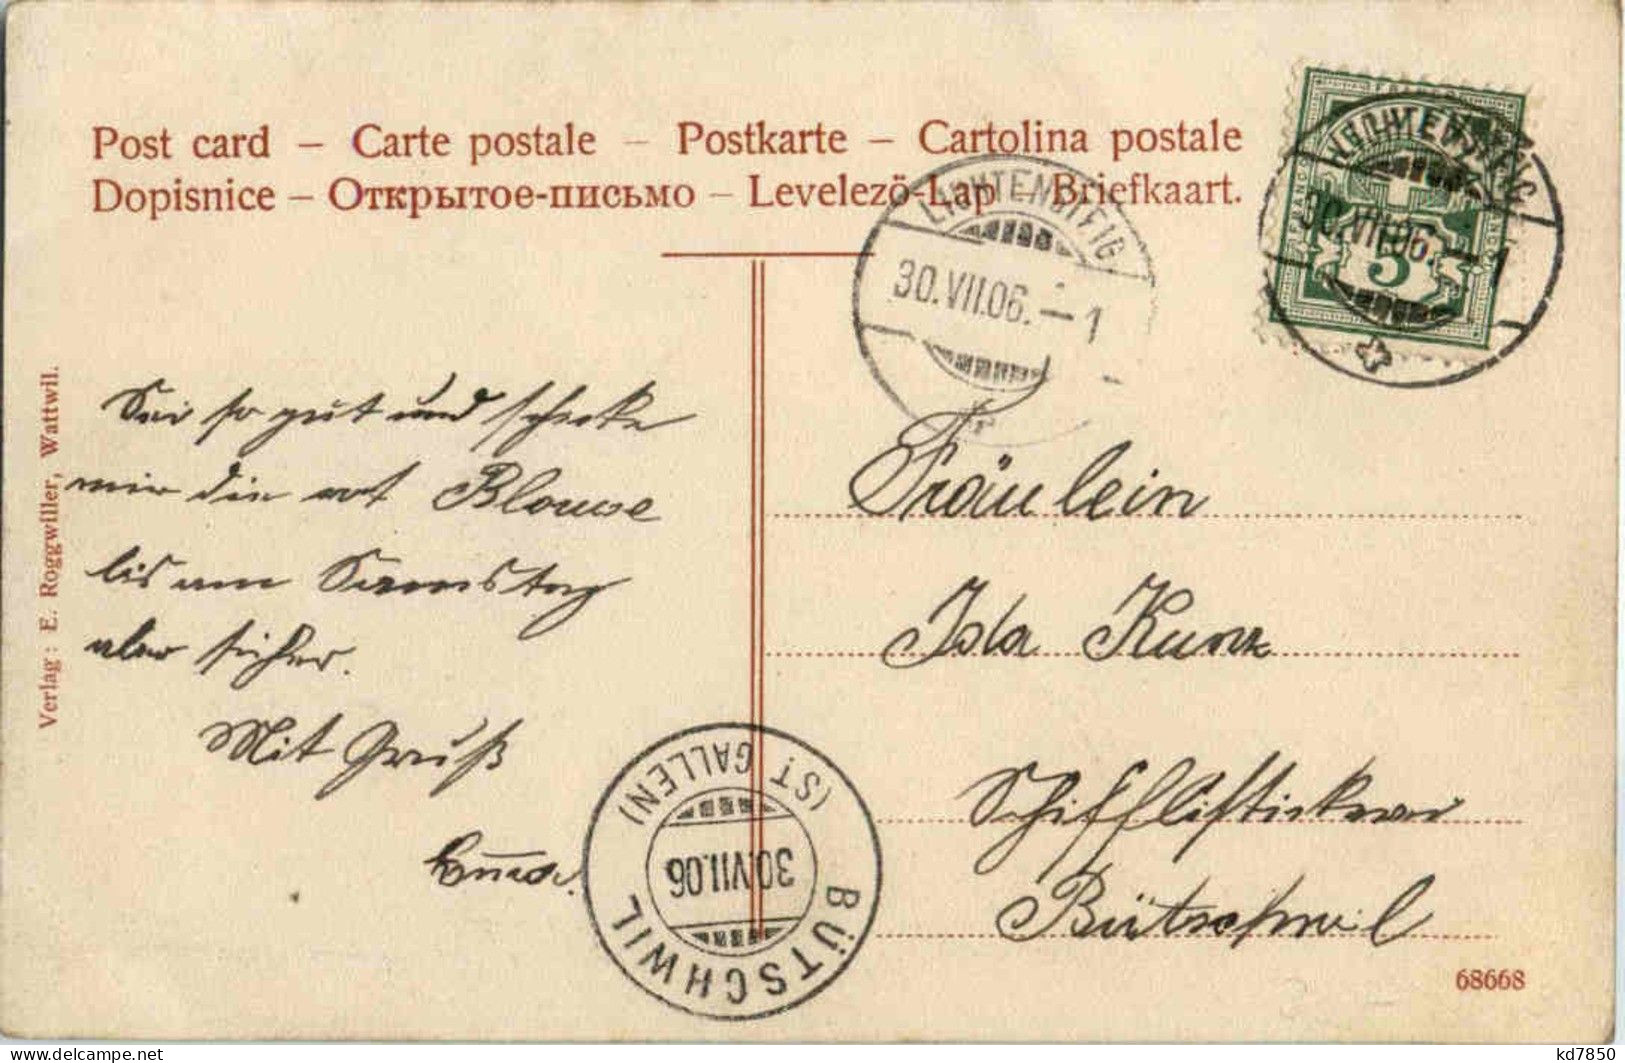 Post card – Carte postale – Postkarte – Cartolina postale
Dopisnice – Открытое-письмо – Levelező-Lap – Briefkaart.
LICHTENSTEIG
30.VII.06.–1
LICHTENSTEIG
30.VII.06.–1
5
Verlag: E. Roggwiller, Wattwil.
Sei so gut und schicke
mir die rot Blouse
bis am Samstag
aber sicher.
Mit Gruß
Fräulein
Ida Kunz
Schifflistickerei
Bütschwil
BÜTSCHWIL
(ST. GALLEN)
30.VII.06
68668
kd7850